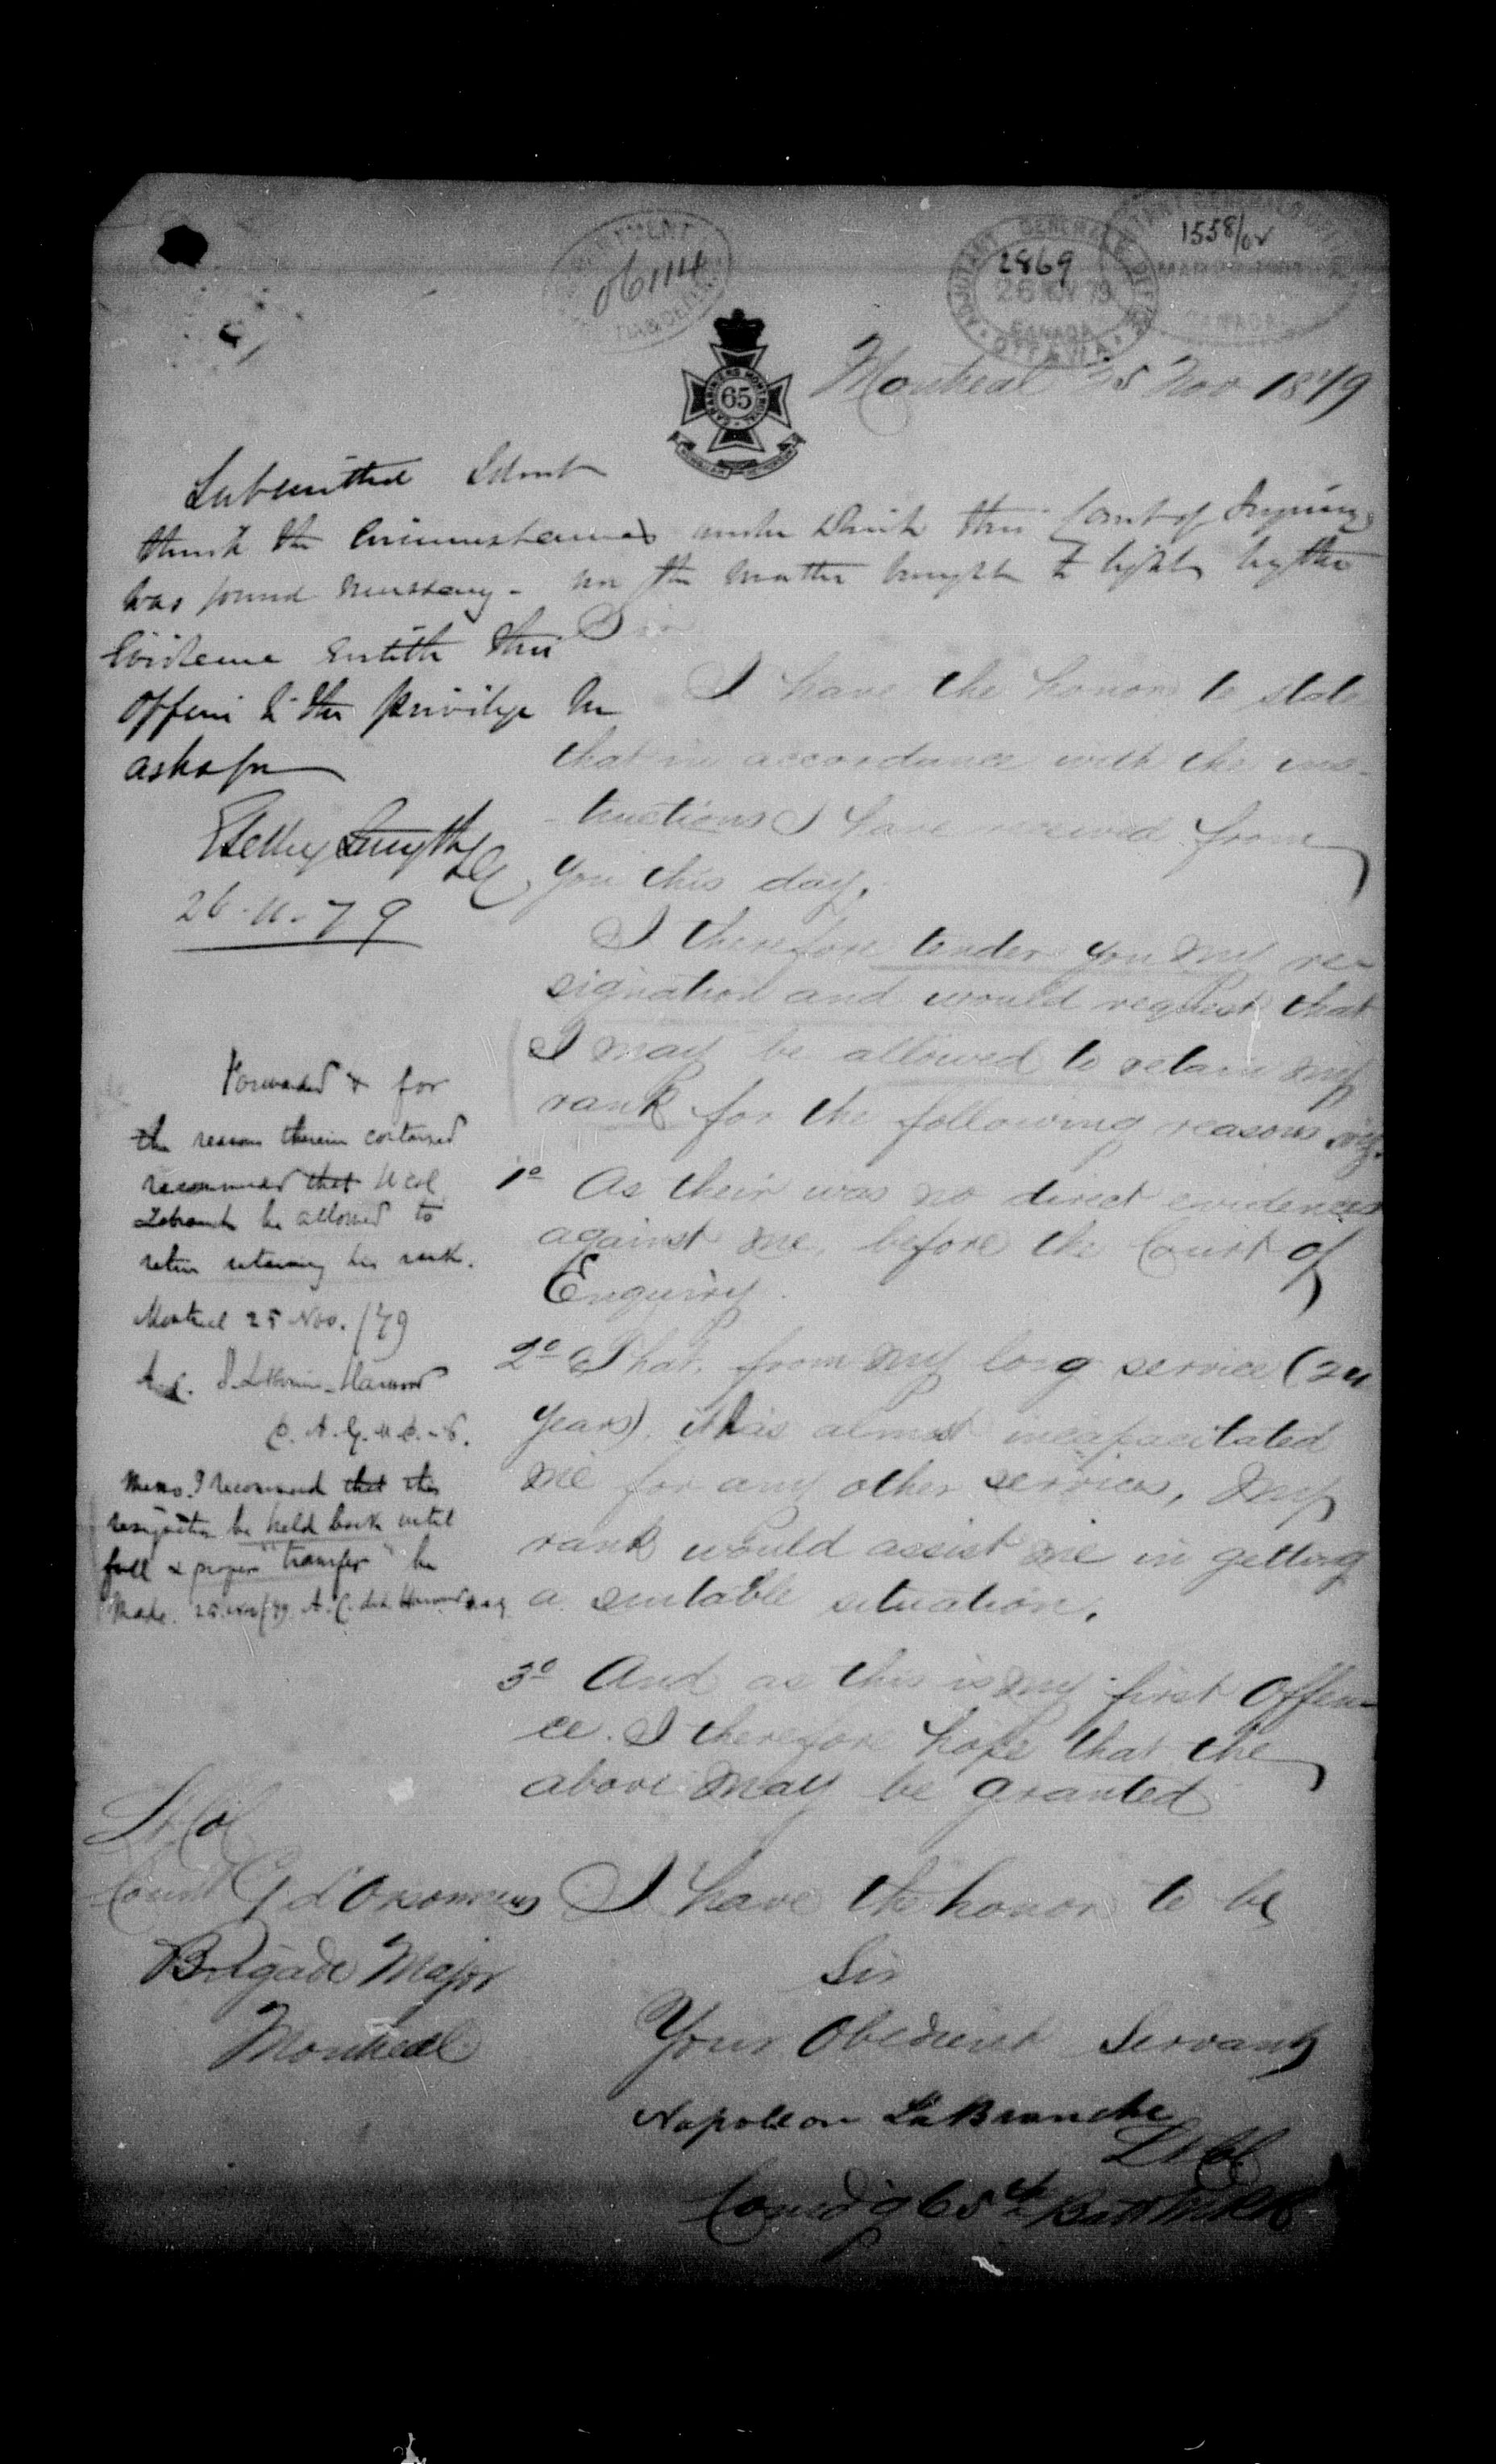 DEPARTMENT
06114
ADJUTANT GENERALS OFFICE
2869
26 NOV 79
CANADA
OTTAWA
1558/02
CANADA
65
Montreal 25 Nov 1879
Submitted I don't
think the circumstances under which this Court of Inquiry
was found necessary - nor the matter brought to light by the
Evidence entitle this
officer to the privilege he
asks for
E Selby Smyth LG
26-11-79
Sir
I have the honor to state
that in accordance with the ins-
-tructions I have received from
you this day.
I therefore tender you my re-
signation and would request that
I may be allowed to retain my
rank for the following reasons viz.
1º As their was no direct evidences
against me, before the Court of
Enquiry.
2º That, from my long service (24
years), it has almost incapacitated
me for any other services, my
rank would assist me in getting
a suitable situation.
3º And as this is my first Offen-
ce. I therefore hope that the
above may be granted
Forwarded & for
the reasons therein contained
recommend that Lt Col
Labranch be allowed to
retire retaining his rank.
Montreal 25 Nov. /79
A.C. Harwood
D.A.G.
Memo. I recommend that this
resignation be held back until
full & proper "transfer" be
made. 25 Nov/79 A.C. de L. Harwood DAG
Lt Col
Count G d'Orsonnens
Brigade Major
Montreal
I have the honor to be
Sir
Your Obedient Servant
Napoleon LaBranche
Lt Col
Comd'g 65th Batt M R